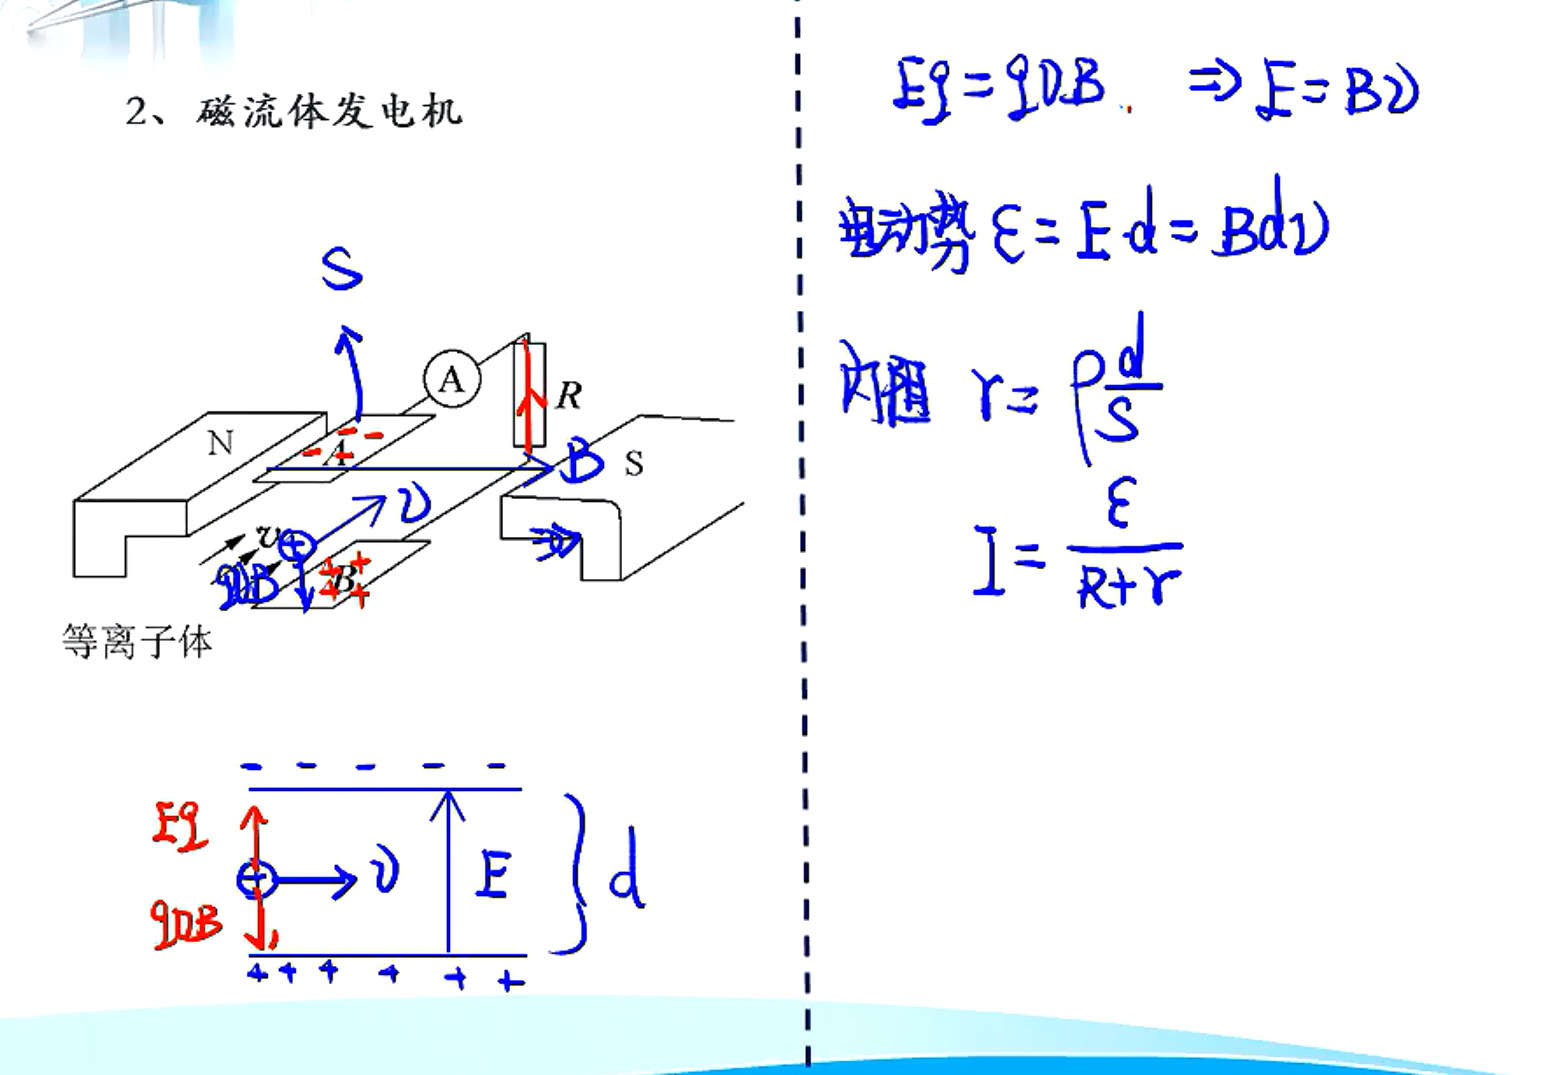 2、磁流体发电机
S
A
R
N
A
B
S
v
v
qvB
B
等离子体
Eq
v
E
d
qvB
Eq=qvB. ⇒E=Bv
电动势 ε=E·d=Bdv
内阻 r=ρd/S
I=ε/(R+r)